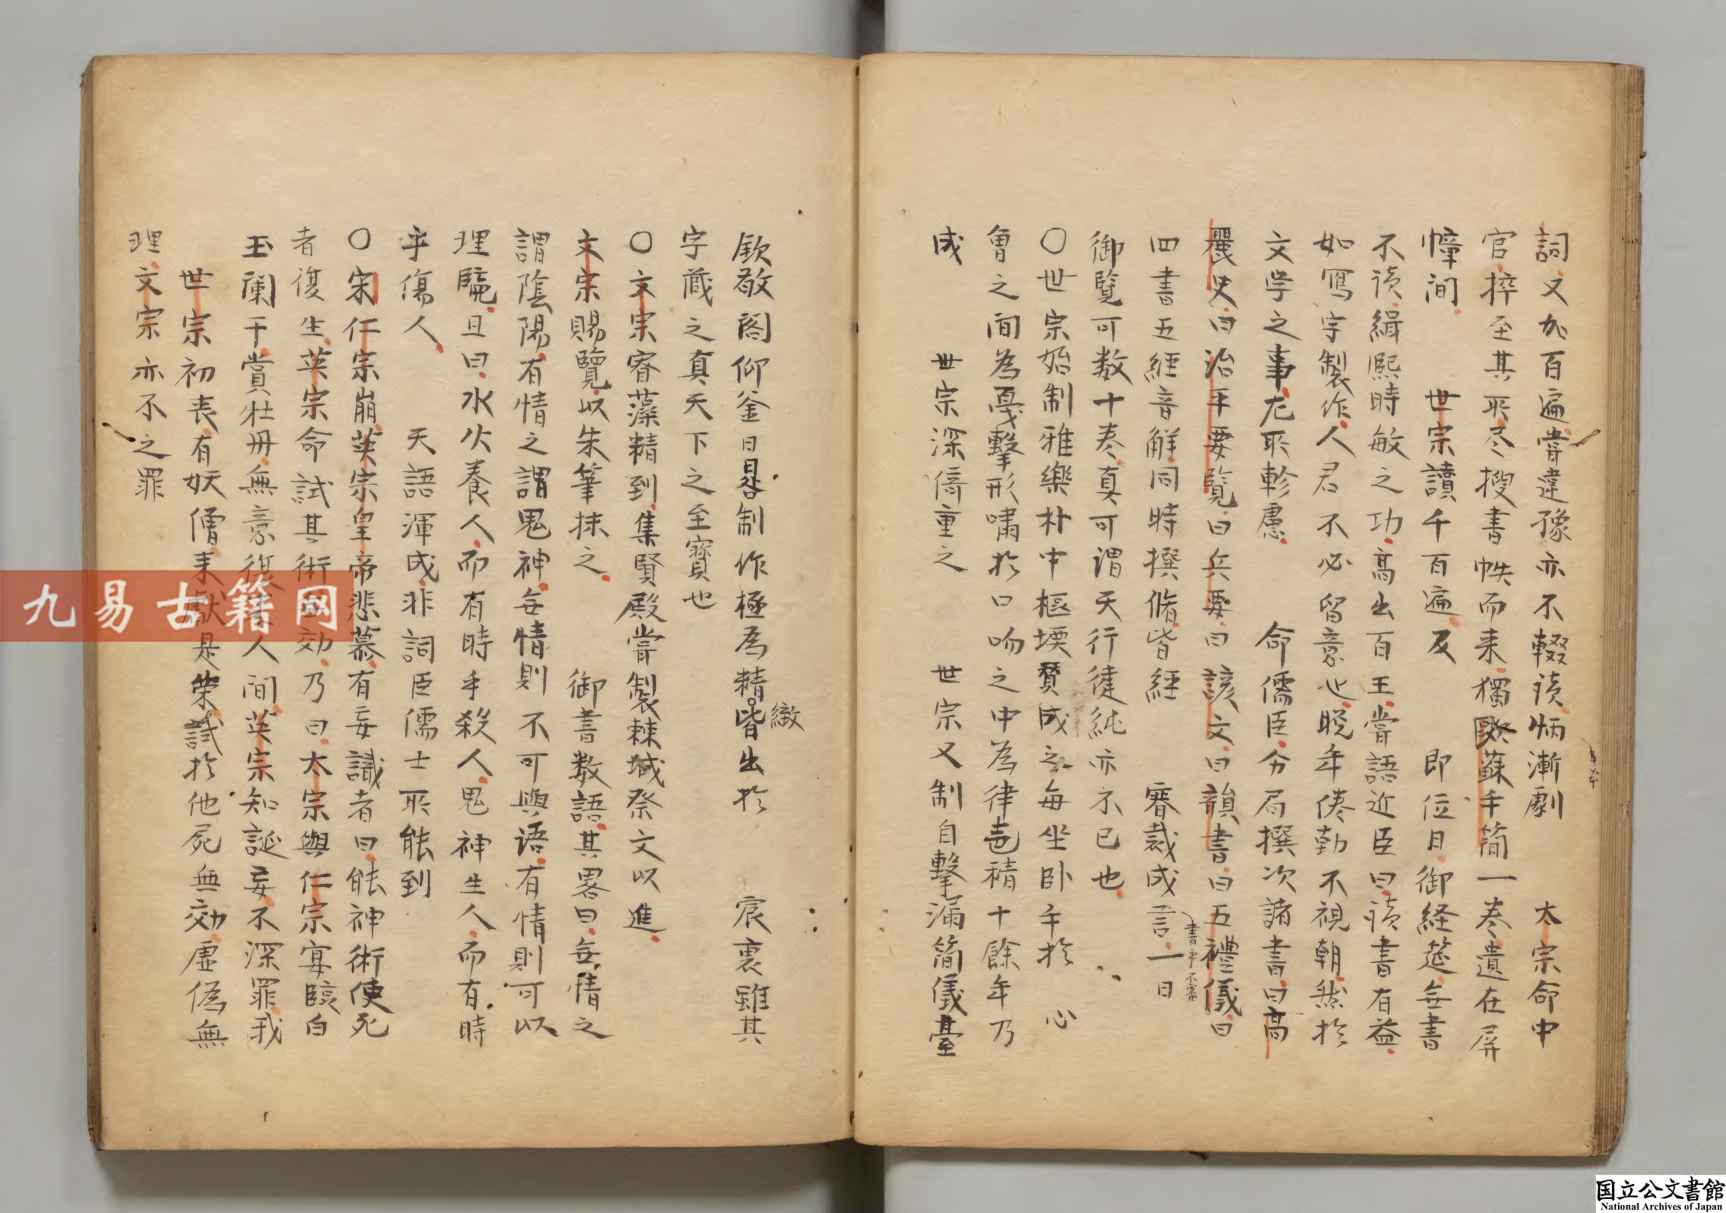 詞又加百遍嘗違豫亦不輟讀病漸劇 太宗命中
官捽至其所尽搜書帙而来獨歐蘇手簡一卷遺在屏
幛间 世宗讀千百遍及 即位日御経莚無書
不读緝熙時敏之功高出百王嘗語近臣曰读書有益
如寫字製作人君不必留意也晚年倦勤不視朝然於
文学之事尤所軫慮 命儒臣分局撰次諸書曰高
麗史曰治平要覽曰兵要曰諺文曰韻書曰五禮儀曰
四書五經音解同時撰脩皆經 睿裁成言一日
御覽可数十卷真可謂天行徤純亦不已也
〇世宗始制雅樂朴中樞堧賛成之每坐卧手於心
胷之间為戛擊形嘯於口吻之中為律 積十餘年乃
成 世宗深倚重之 世宗又制自擊漏簡儀臺
欽敬閣仰釜日晷制作極為精皆出於 宸衷雖其
緻
字蔵之真天下之至寶也
〇文宗睿藻精到集賢殿嘗製棘城祭文以進
文宗賜覽以朱筆抹之 御書数語其畧曰無情之
謂陰陽有情之謂鬼神無情則不可與语有情則可以
理驗且曰水火養人而有時乎殺人鬼神生人而有時
乎傷人 天語渾成非詞臣儒士所能到
〇宋仁宗崩英宗皇帝悲慕有妄識者曰能神術使死
者復生英宗命試其術 効乃曰太宗與仁宗宴臨白
玉闌干賞牡丹無意復 人间英宗知誕妄不深罪我
世宗初丧有妖僧来献是 試於他屍無効虚偽無
理文宗亦不之罪
九易古籍网
国立公文書館
National Archives of Japan